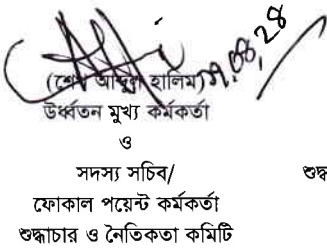 (শেখ আব্দুল হালিম)
উর্ধ্বতন মুখ্য কর্মকর্তা
ও
সদস্য সচিব/
ফোকাল পয়েন্ট কর্মকর্তা
শুদ্ধাচার ও নৈতিকতা কমিটি